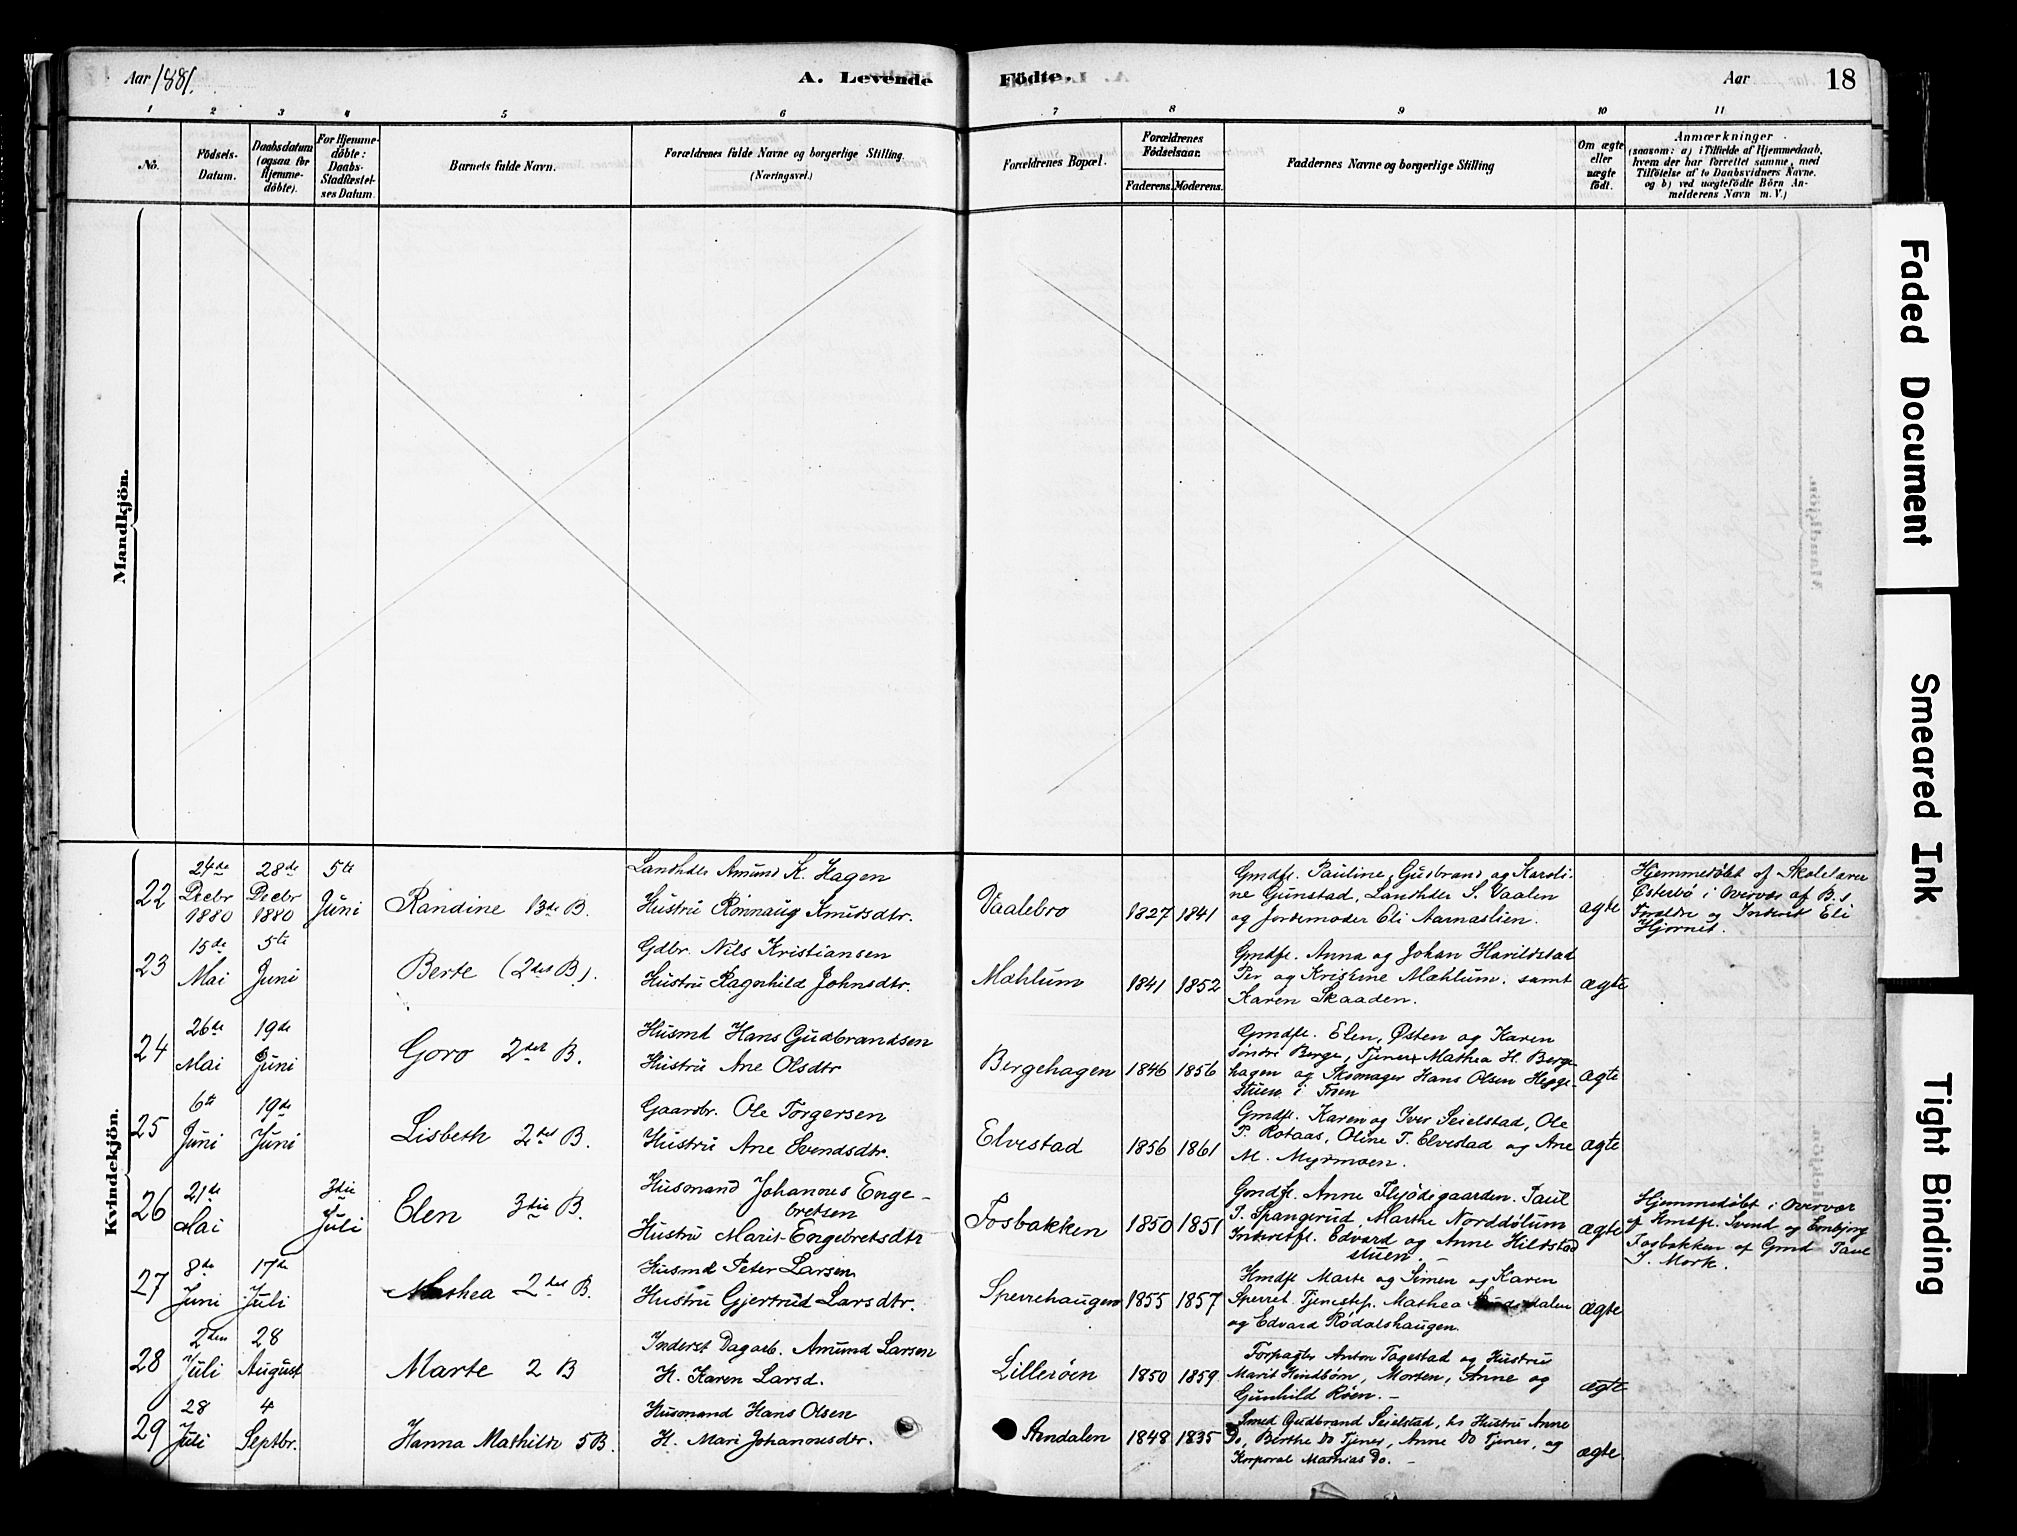 Aar 1881.
A. Levende
Födte.
Aar
18
1
2
3
4
5
6
7
8
9
10
11
No.
Födsels-
Datum.
Daabsdatum
(ogsaa for
Hjemme-
döbte).
For Hjemme-
döbte:
Daabs-
Stadfæstel-
ses Datum.
Barnets fulde Navn.
Forældrenes fulde Navne og borgerlige Stilling.
(Næringsvei.)
Forældrenes Bopæl.
Forældrenes
Födselsaar.
Faderens.
Moderens.
Faddernes Navne og borgerlige Stilling
Om ægte
eller
uægte
födt.
Anmærkninger
(saasom: a) i Tilfælde af Hjemmedaab,
hvem der har forrettet samme, med
Tilföielse af to Daabsvidners Navne.
og b) ved uægtefödte Börn An-
melderens Navn m. V.)
Mandkjön.
Kvindekjön.
22
24de
Decbr
1880
28de
Decbr
1880
5te
Juni
Randine 13de B.
Landhdlr Amund K. Hagen
Hustru Rönnaug Knutsdtr.
Vaalebro
1827
1841
Gmdfl. Pauline, Gudbrand og Karoli-
ne Gunstad, Landhdlr S. Vaalen
og Jordemoder Eli Aarnæslien.
ægte
Hjemmedøbt af Skolelærer
Østerbö i Overvær af B.s
Forældre og Inderst Eli
Hjörnet.
23
15de
Mai
5te
Juni
Berte (2det B).
Gdbr. Nils Kristiansen
Hustru Ragnhild Johnsdtr.
Mæhlum
1841
1852
Gmdfl. Anna og Johan Harildstad
Per og Kristine Mæhlum. samt
Karen Skaaden.
ægte
24
26de
Mai
19de
Juni
Goro 2det B.
Husmd Hans Gudbrandsen
Hustru Ane Olsdtr
Bergehagen
1846
1856
Gmdfl. Elen, Østen og Karen
söndre Berge, Tjener Mathea H. Berge-
hagen og Skomager Hans Olsen
stuen i
ægte
25
6te
Juni
19de
Juni
Lisbeth 2det B.
Gaardbr. Ole Torgersen
Hustru Ane Svendsdtr.
Elvestad
1856
1861
Gmdfl. Karen og Iver Seielstad, Ole
P. Rotaas, Oline T. Elvestad og Ane
M. Myrmoen.
ægte
26
21de
Mai
3die
Juli
Elen 3die B.
Husmand Johannes Enge-
bretsen
Hustru Marit Engebretsdtr
Fosbakken
1850
1851
Gmdfl. Anne Flyödegaarden. Paul
T. Spangerud, Marthe Norddölum
Inderstfl. Edvard og Anne Hildstad
stuen. -
ægte
Hjemmedøbt i Overvær
af Hmdfl. Svend og Embjörg
Fosbakken af Gmd Paul
J. Mork.
27
8de
Juni
17de
Juli
Mathea 2det B.
Husmd Peter Larsen
Hustru Gjertrud Larsdtr.
Sperrehaugen
1855
1857
Hmdfl Marte og Simen og Karen
Sperret. Tjenestep. Mathea
og Edvard Rodalshaugen.
ægte
28
2den
Juli
28
August
Marte 2 B
Inderst Dagarb. Amund Larsen
H. Karen Larsd.
Lilleröen
1850
1859
Forpagter Anton Tagestad og Hustru
Marit Kindbörn, Morten, Anne og
Gunhild Röen. -
ægte
29
28
Juli
4
Septbr.
Hanna Mathilde 5 B.
Husmand Hans Olsen
H. Mari Johannesdtr.
Arndalen
1848
1835
Smed Gudbrand Seielstad, hs Hustru Anne
Do, Berthe Do Tjener, Anne Do Tjener, og
Korporal Mathias Do. -
ægte.
Faded Document
Smeared Ink
Tight Binding